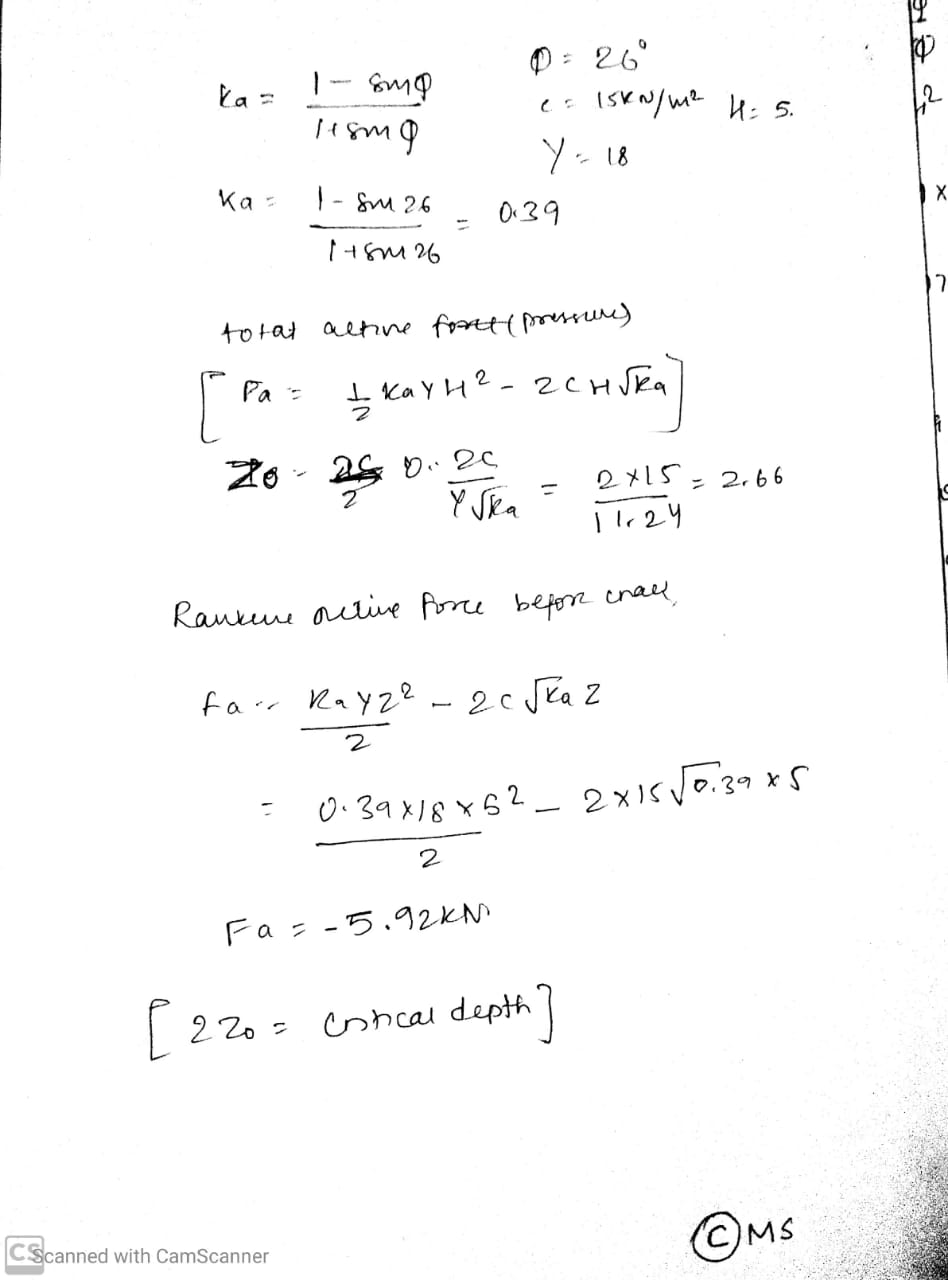 Φ = 26°
Ka = 1 - sinφ / 1+sinφ
c = 15KN/m2 H = 5.
γ = 18
Ka = 1 - sin 26 / 1+sin 26 = 0.39
total active force (pressure)
[ Pa = 1/2 Ka γ H2 - 2CH√Ka ]
Z0 = 2C / γ√Ka = 2×15 / 11.24 = 2.66
Rankine active force before crack,
Fa = Kaγz2 / 2 - 2c√Ka z
= 0.39×18×52 / 2 - 2×15√0.39 × 5
Fa = -5.92KN
[ 2Z0 = critical depth ]
© MS
CS Scanned with CamScanner